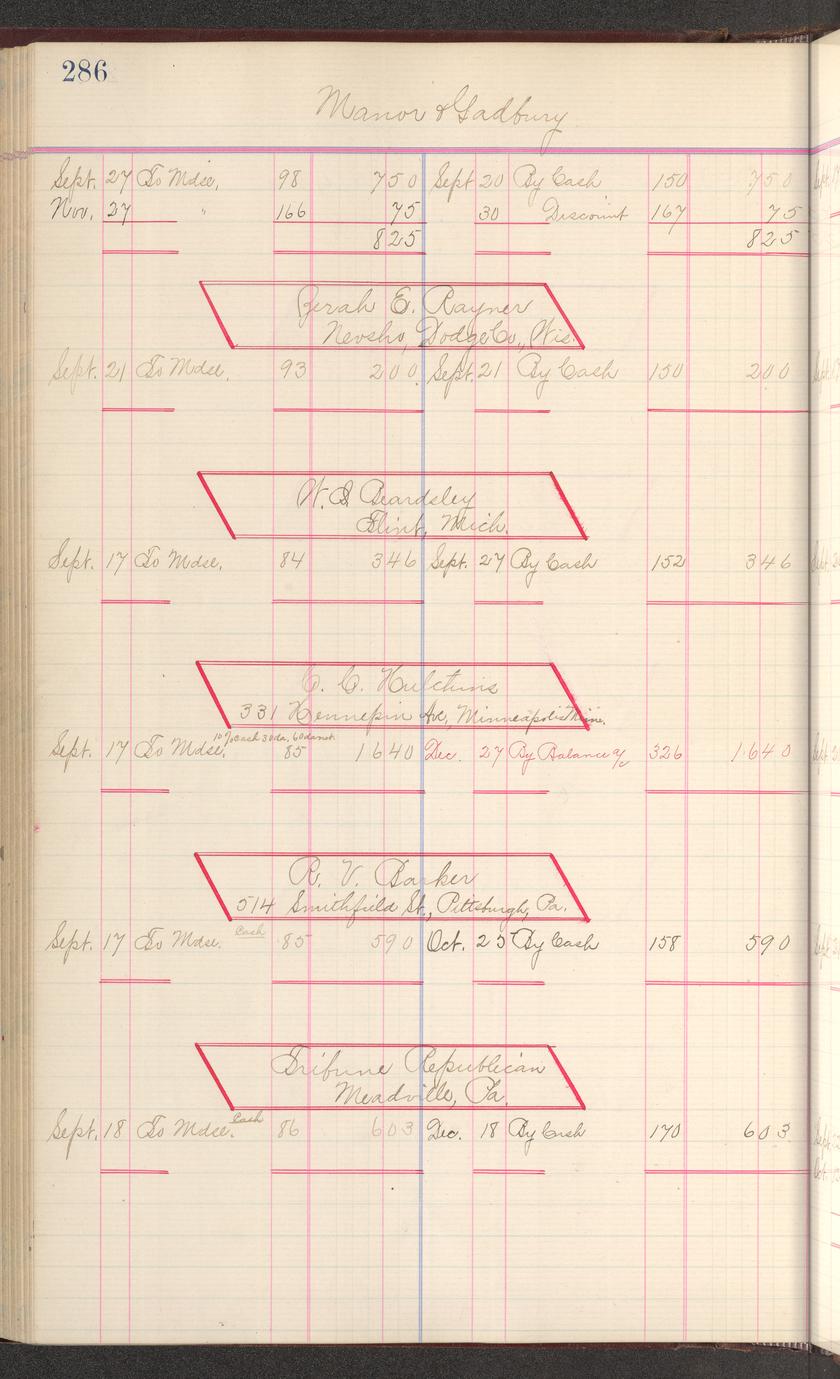 286
Manor & Gadbury
Sept. 27 To Mdse, 98 750 Sept 20 By Cash 150 750
Nov. 27 " 166 75 30 Discount 167 75
825 825
Zerah E. Rayner
Neosho, Dodge Co., Wis.
Sept. 21 To Mdse, 93 200 Sept. 21 By Cash 150 200
Beardsley
Flint, Mich.
Sept. 17 To Mdse, 84 346 Sept. 27 By Cash 152 346
C. C. Hutchins
331 Hennepin Ave, Minneapolis Minn.
10% Cash 30 da. 60 da net
Sept. 17 To Mdse, 85 1640 Dec. 27 By Balance a/c 326 1640
R. V. Barker
514 Smithfield St., Pittsburgh, Pa.
Cash
Sept. 17 To Mdse. 85 590 Oct. 25 By Cash 158 590
Tribune Republican
Meadville, Pa.
Cash
Sept. 18 To Mdse. 86 603 Dec. 18 By Cash 170 603